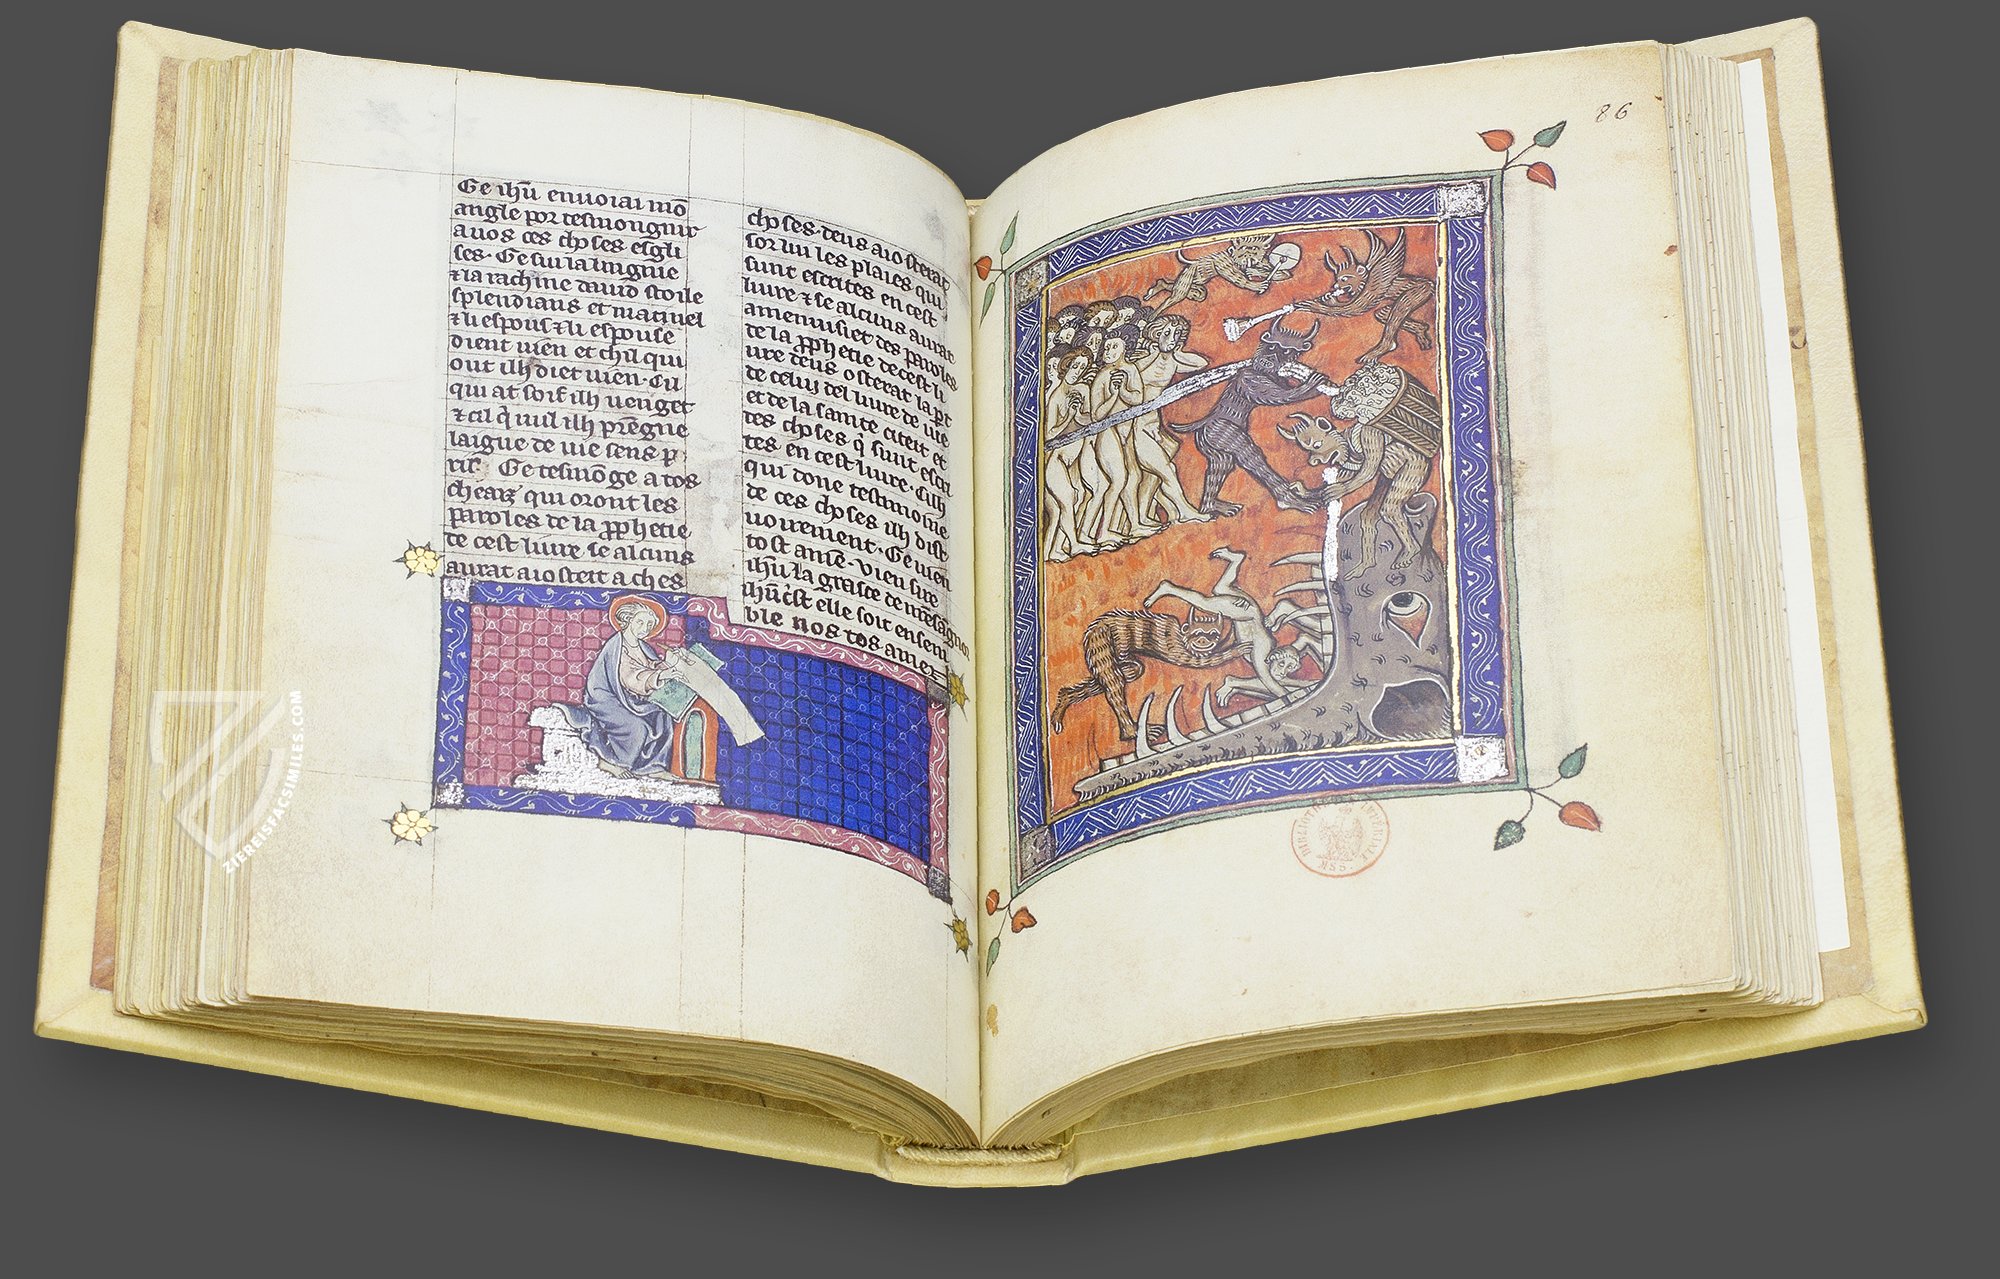 Ge ihu enuoiai mō
angle por tesmongnir
auos ces choses esgli
ses. Ge sui la lingnie
⁊ la rachine dauid stoile
splendians et matinel
⁊ li espous ⁊ li espouse
dient uien et chil qui
out ilh diet uien. Cu
qui at soif ilh uenget
⁊ cil q̄ uul ilh prēgne
laigue de uie sens p
ris. Ge tesmōge a tos
cheaz qui oront les
paroles de la pphetie
de cest liure se alcuns
aurat aiosteit a ches
choses. deus aiosterat
sor lui les plaies qui
sunt escrites en cest
liure ⁊ se alcuns aurat
amenusiet des paroles
de la pphetie de cest li
ure deus osterat la pt
de celui del liure de uie
et de la sainte citeit et
des choses q̄ sunt escri
tes en cest liure. Cilh
qui done testmonie
de ces choses ilh dist
uoirement. Ge uien
tost amē. Vien sire
ihū la grasce de nre sangnor
ihū cst elle soit ensem
ble nos tos. amen
86
BIBLIOTHÈQUE IMPÉRIALE
MSS.
ZIEREISFACSIMILES.COM